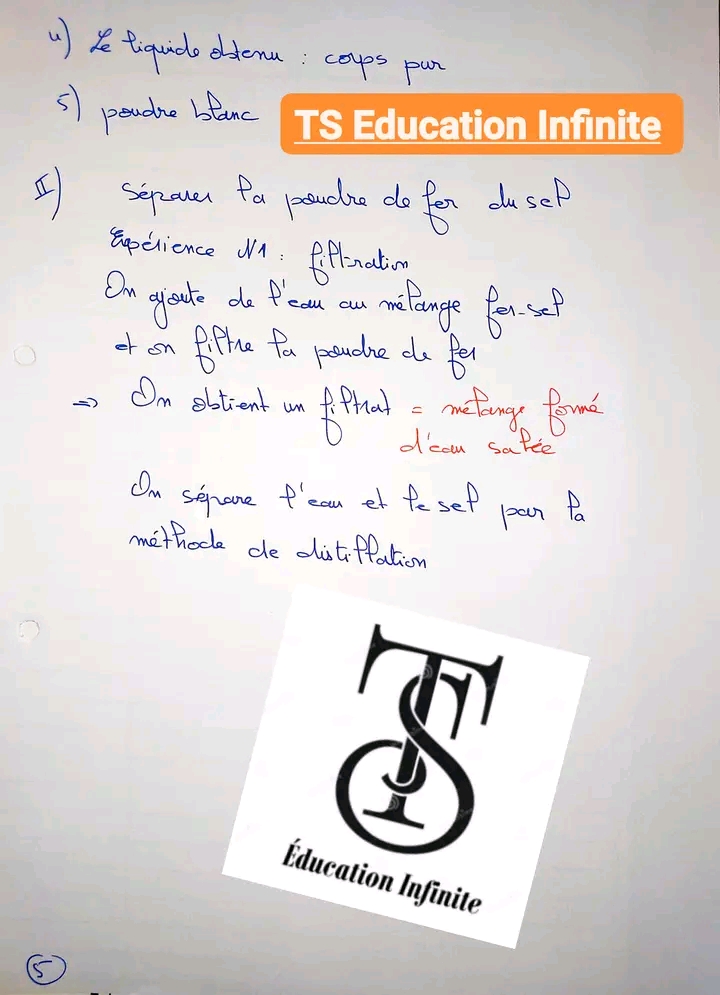 4) Le liquide obtenu : corps pur
5) poudre blanc
TS Education Infinite
II) Séparer la poudre de fer du sel
Expérience N1 : filtration
On ajoute de l'eau au mélange fer-sel
et on filtre la poudre de fer
=> On obtient un filtrat = mélange formé
d'eau salée
On sépare l'eau et le sel par la
méthode de distillation
TS
Éducation Infinite
5